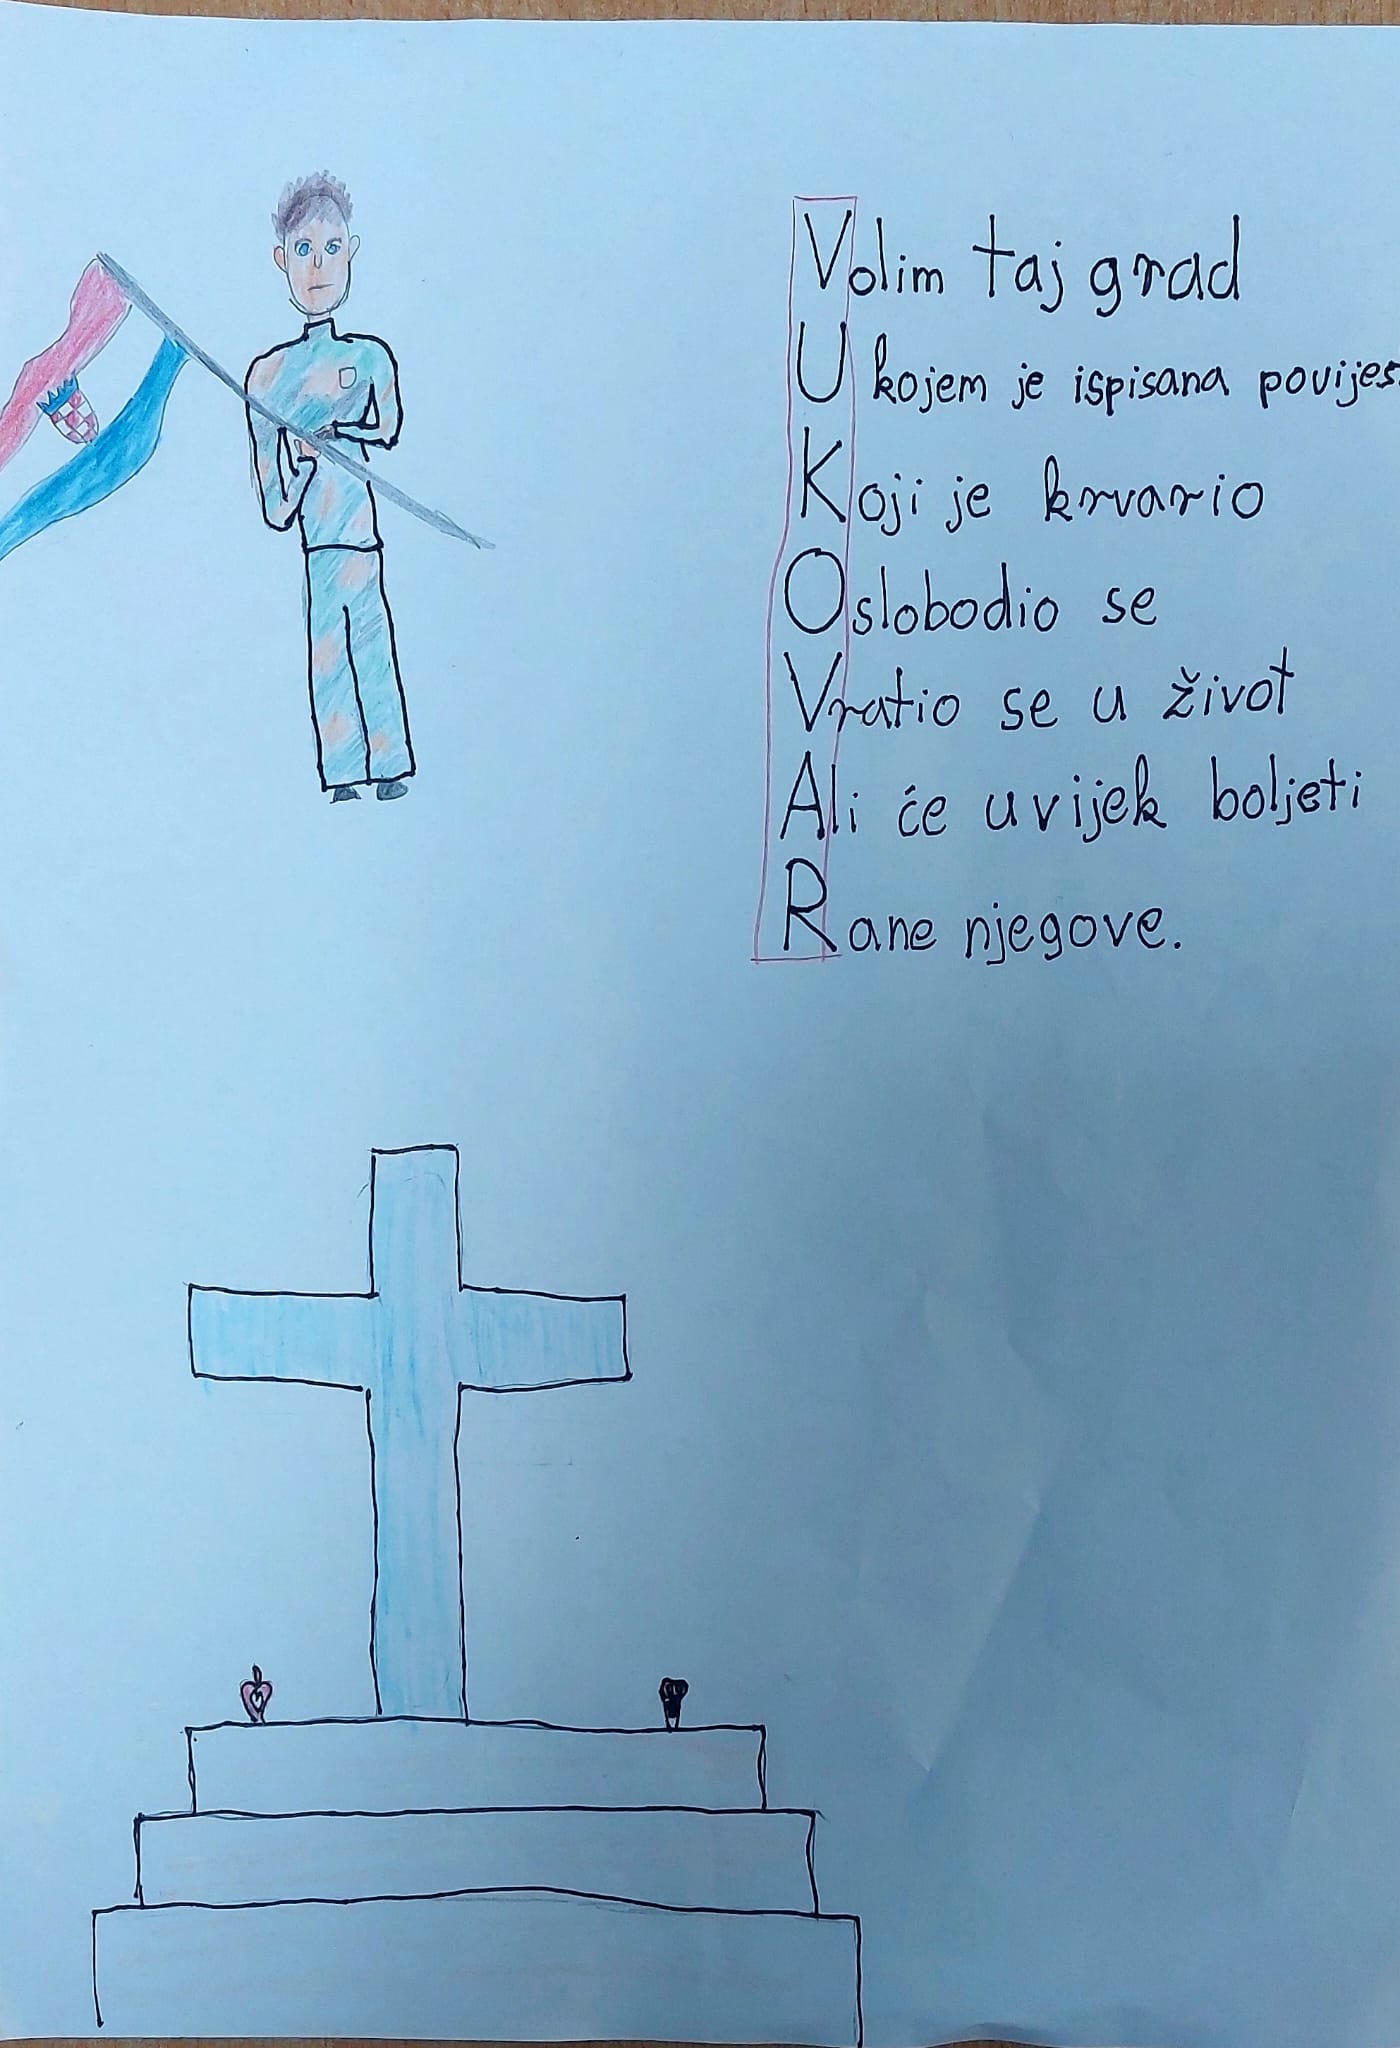 Volim taj grad
U kojem je ispisana povijes
Koji je krvario
Oslobodio se
Vratio se u život
Ali će uvijek boljeti
Rane njegove.